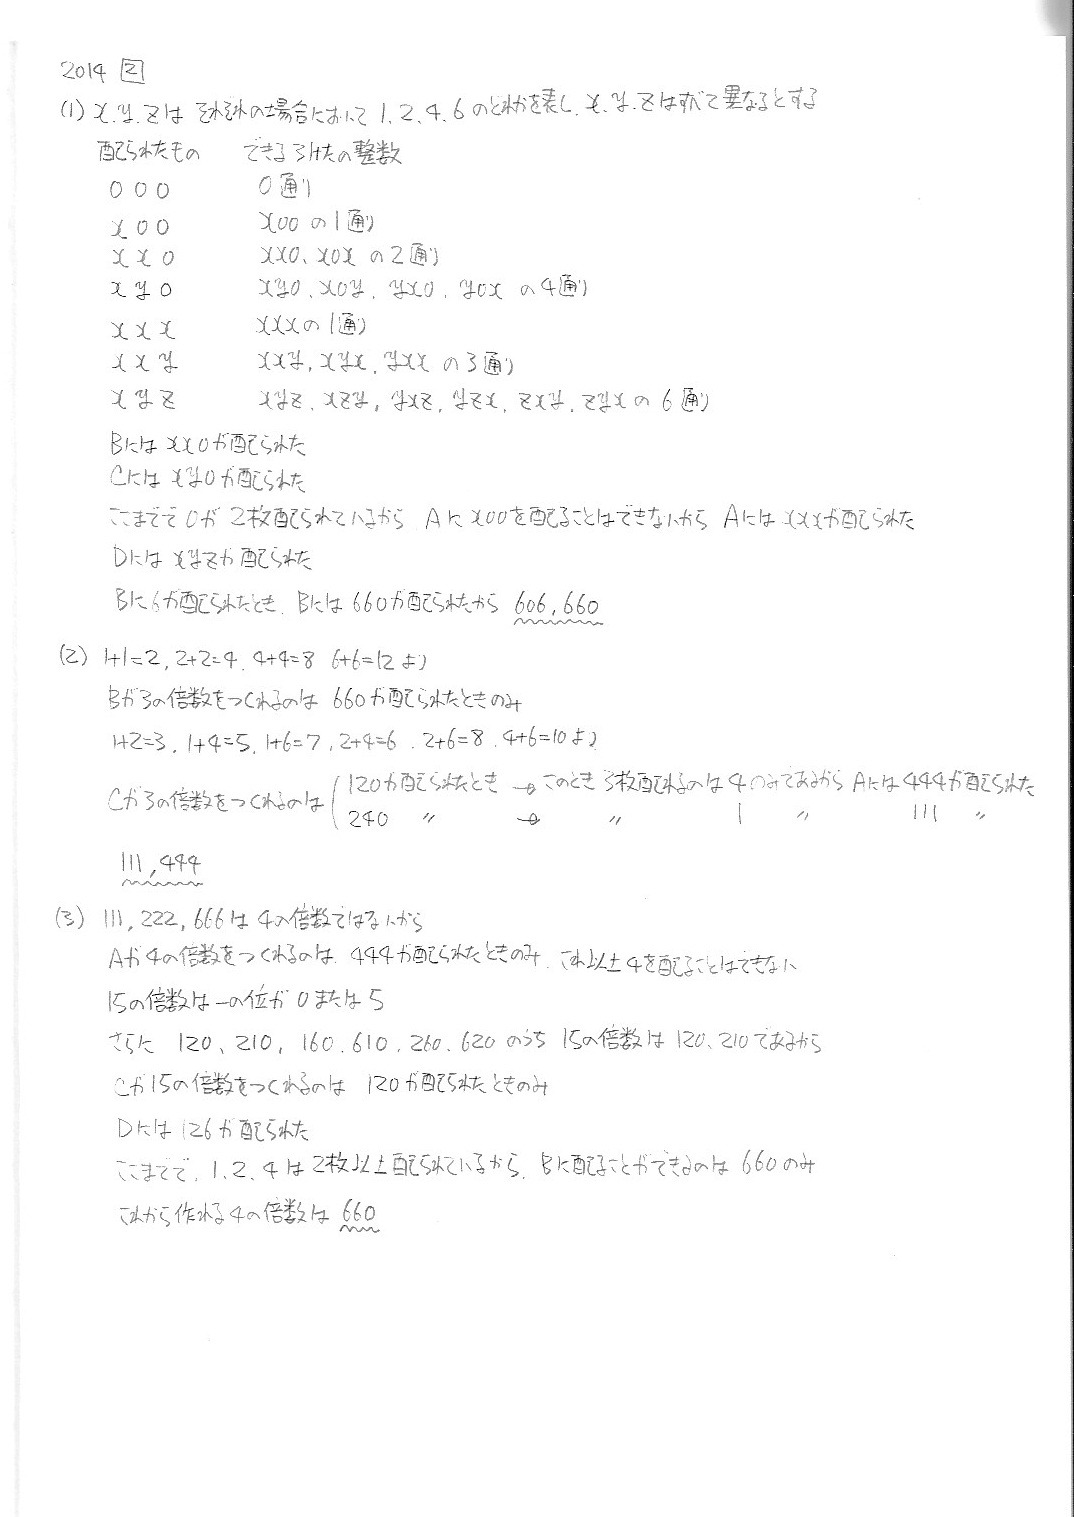 2014 2
(1) x. y. zは それぞれの場合において 1, 2, 4, 6 のどれかを表し、x. y. zはすべて異なるとする
配られたもの できる3けたの整数
0 0 0 0通り
x 0 0 x00 の1通り
x x 0 xx0、x0x の2通り
x y 0 xy0、x0y、yx0、y0x の4通り
x x x xxxの1通り
x x y xxy, xyx, yxx の3通り
x y z xyz、xzy, yxz, yzx, zxy, zyxの 6通り
Bには xx0が配られた
Cには xy0が配られた
ここまでで 0が 2枚配られているから Aに x00を配ることはできないから Aには xxxが配られた
Dには xyzが配られた
Bに6が配られたとき、Bには 660が配られたから 606, 660
(2) 1+1=2, 2+2=4、4+4=8 6+6=12 より
Bが3の倍数をつくれるのは 660が配られたときのみ
1+2=3, 1+4=5, 1+6=7, 2+4=6, 2+6=8, 4+6=10より
Cが3の倍数をつくれるのは 120が配られたとき → このとき 3枚配れるのは 4のみであるから Aには 444が配られた
240 〃 → 〃 1 〃 111 〃
111, 444
(3) 111, 222, 666は 4の倍数ではないから
Aが4の倍数をつくれるのは、444が配られたときのみ、これ以上4を配ることはできない
15の倍数は一の位が 0または5
さらに 120、210, 160, 610, 260、620 のうち 15の倍数は 120、210であるから
Cが15の倍数をつくれるのは 120が配られたときのみ
Dには126が配られた
ここまでで、1、2、4は 2枚以上配られているから、Bに配ることができるのは 660のみ
これから作れる4の倍数は 660